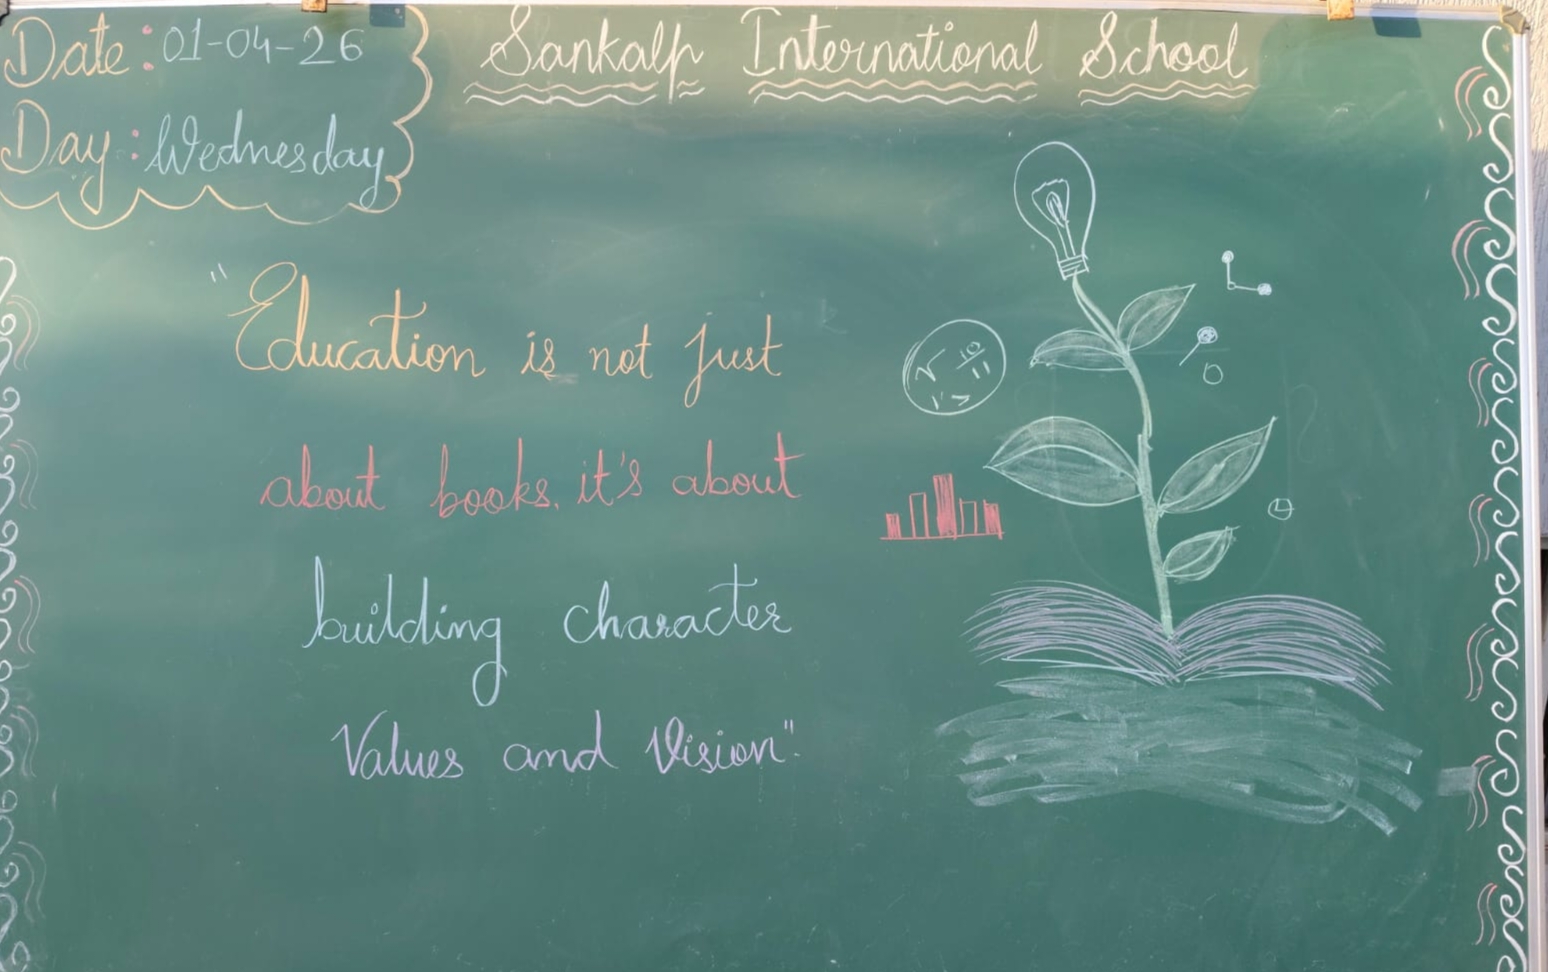 Date: 01-04-26
Sankalp International School
Day: Wednesday
"Education is not just
about books. it's about
building character
Values and Vision".